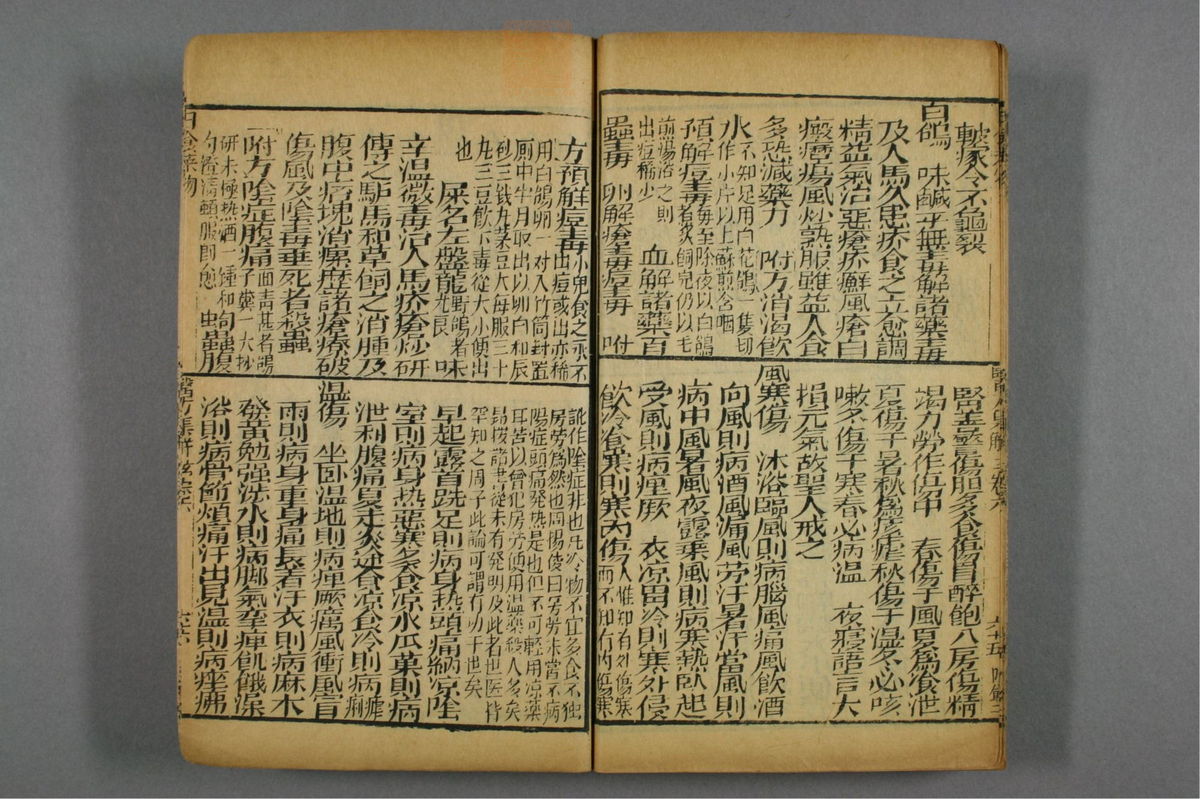 皸瘃令不龜裂
白鴿 味鹹平無毒解諸藥毒
及人馬久患疥食之立愈調
精益氣治惡瘡疥癬風瘡白
癜癧瘍風炒熟服雖益人食
多恐減藥力 附方消渴飲
水不知足用白花鴿一隻切
作小片以土蘇煎含咽
預解痘毒每至除夜以白鴿
煮炙飼兒仍以毛
煎湯浴之則
出痘稀少 血解諸藥百
蠱毒 卵解瘡毒痘毒 附
竪筆驚傷胆多食傷胃醉飽入房傷精
竭力勞作傷中 春傷于風夏為飧泄
夏傷于暑秋為痎瘧秋傷于濕冬必咳
嗽冬傷于寒春必病溫 夜寢語言大
損元氣故聖人戒之
風寒傷 沐浴臨風則病腦風痛風飲酒
向風則病酒風漏風勞汗暑汗當風則
病中風暑風夜露乘風則病寒熱臥起
受風則病痺厥 衣凉冒冷則寒外侵
飲冷飡寒則寒內傷人惟知有外傷寒
而不知有內傷寒
方預解痘毒小兒食之永不
出痘或出亦稀
用白鴿卵一對入竹筒封置
厠中半月取出以卵白和辰
砂三錢丸菉豆大每服三十
丸三豆飲下毒從大小便出
也
屎名左盤龍野鴿者
尤良 味
辛温微毒治人馬疥瘡炒研
傅之馿馬和草飼之消腫及
腹中痞塊消瘰癧諸瘡療破
傷風及陰毒垂死者殺蟲
附方陰症腹痛面青甚者鴿
子糞一大抄
研末極热酒一鍾和匀
澄清頓服即愈 虫蟲腹
訛作陰症非也凡冷物不宜多食不独
房勞為然也周惕菴曰房劳未嘗不病
陽症頭痛発热是也但不可輕用凉薬
耳苦以曾犯房劳便用温藥殺人多矣
昂按諸書從未有発明及此者世医皆
罕知之周子此論可謂有功千世矣
早起露首跣足則病身热頭痛納凉陰
室則病身热惡寒多食凉水瓜菓則病
泄利腹痛夏走炎途食凉食冷則病瘧
痢
温傷 坐卧温地則病痺厥癘風衝風冒
雨則病身重身痛長着汗衣則病麻木
發黄勉强洗水則病脚氣攣痺飢餓澡
浴則病骨節煩痛汗出見温則病痤疿